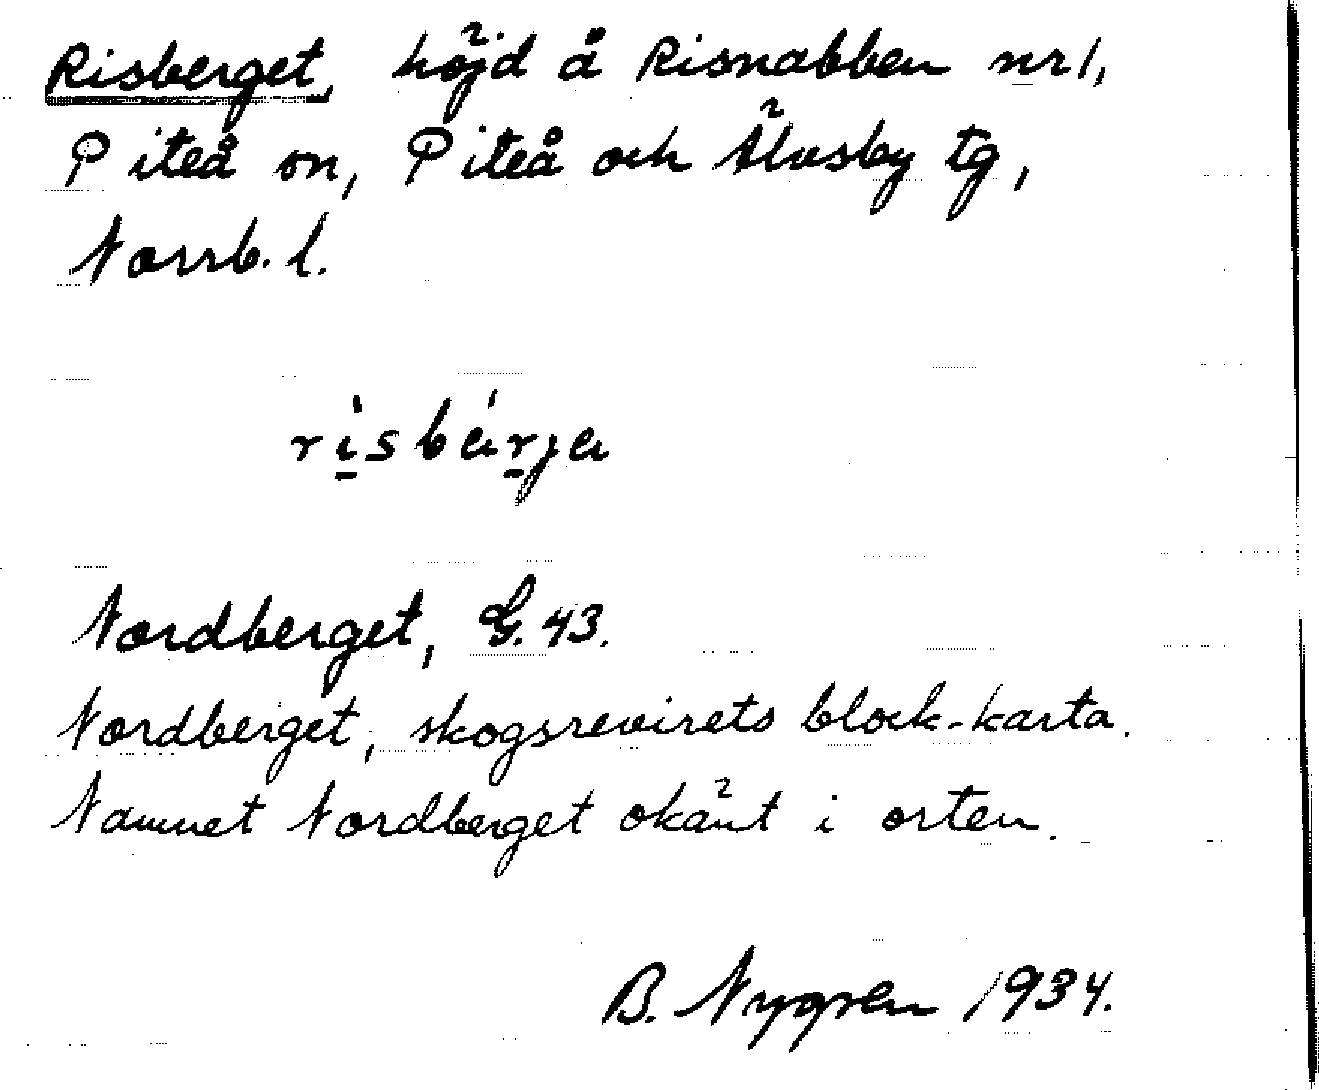 Risberget, höjd å Risnabben nr 1,
Piteå sn, Piteå och Älvsby tg,
Norrb. l.
rìsbárja
Nordberget, G. 43.
Nordberget, skogsrevirets block-karta.
Namnet Nordberget okänt i orten.
B. Nygren 1934.